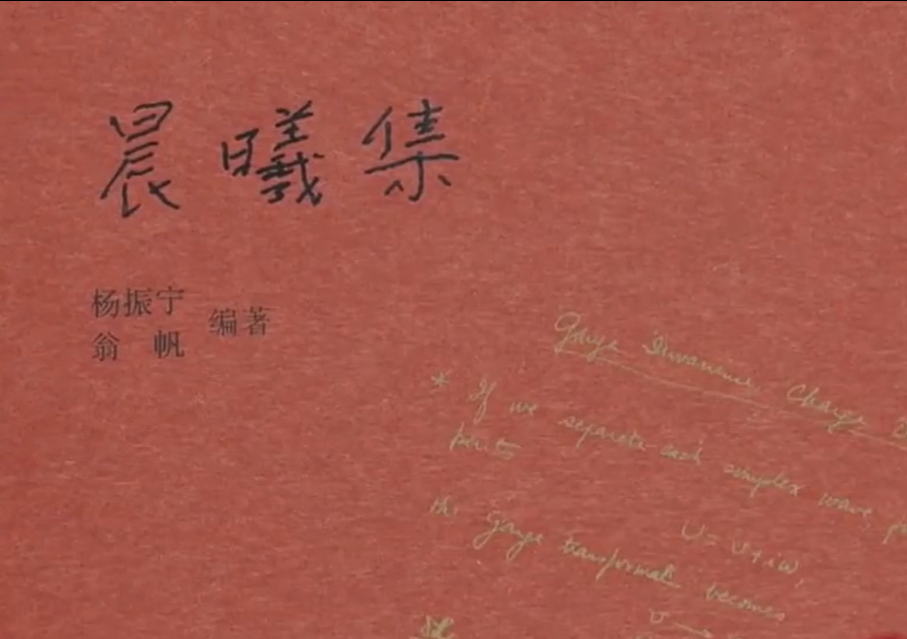 晨曦集
杨振宁
翁帆 编著
Gauge Invariance Charge
* If we separate each complex wave
parts
U = v + iw,
the gauge transformat. becomes
v →